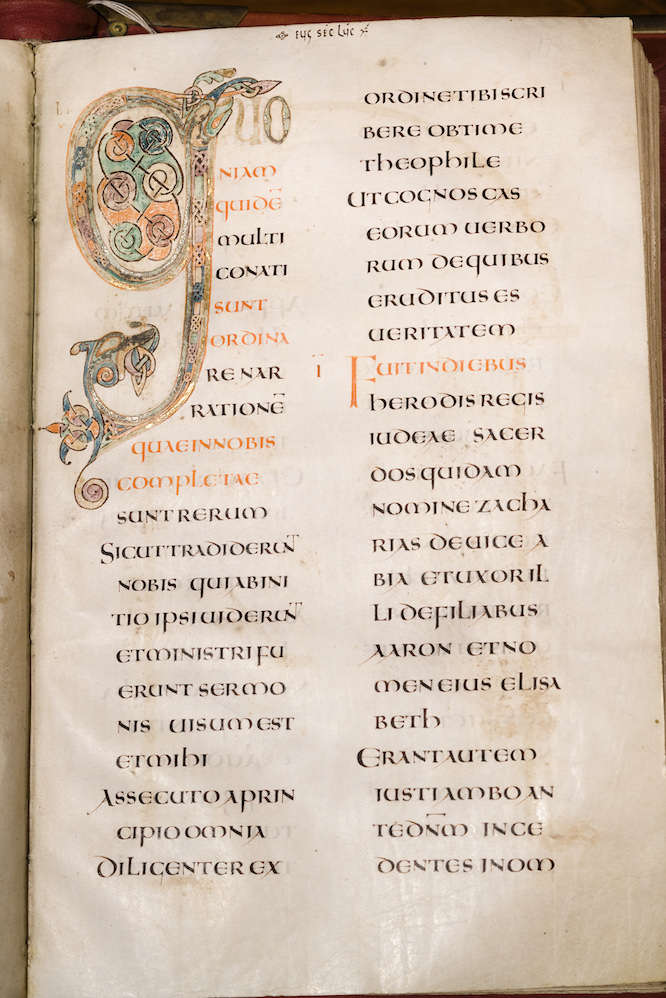 EUG SEC LUC
QUO
NIAM
QUIDE̅
MULTI
CONATI
SUNT
ORDINA
RE NAR
RATIONE̅
QUAE IN NOBIS
COMPLETAE
SUNT RERUM
SICUT TRADIDERUNT
NOBIS QUI AB INI
TIO IPSI UIDERUNT
ET MINISTRI FU
ERUNT SERMO
NIS UISUM EST
ET MIHI
ASSECUTO A PRIN
CIPIO OMNIA
DILIGENTER EX
ORDINE TIBI SCRI
BERE OBTIME
THEOPHILE
UT COGNOSCAS
EORUM UERBO
RUM DE QUIBUS
ERUDITUS ES
UERITATEM
I̅ FUIT IN DIEBUS
HERODIS REGIS
IUDEAE SACER
DOS QUIDAM
NOMINE ZACHA
RIAS DE UICE A
BIA ET UXOR IL
LI DE FILIABUS
AARON ET NO
MEN EIUS ELISA
BETH
ERANT AUTEM
IUSTI AMBO AN
TE DN̅M INCE
DENTES IN OM